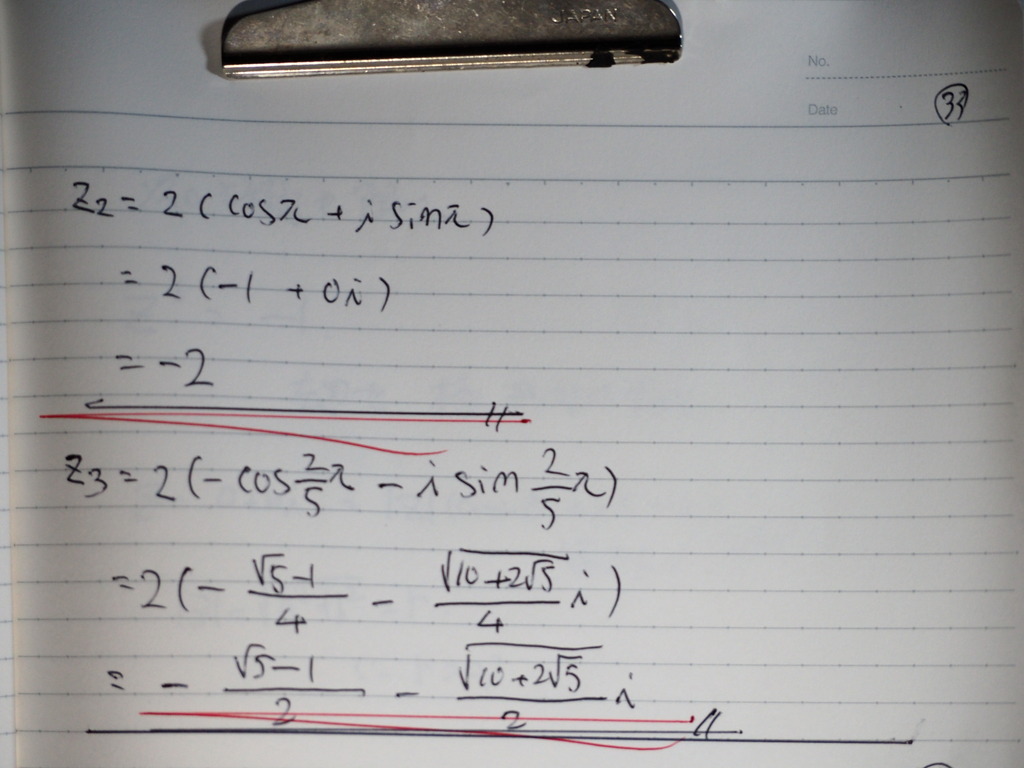 JAPAN
No.
Date
z₂ = 2 (cosπ + i sinπ)
= 2 (-1 + 0i)
= -2
z₃ = 2 (- cos 2/5 π - i sin 2/5 π)
= 2 (- (√5-1)/4 - √(10+2√5)/4 i)
= - (√5-1)/2 - √(10+2√5)/2 i